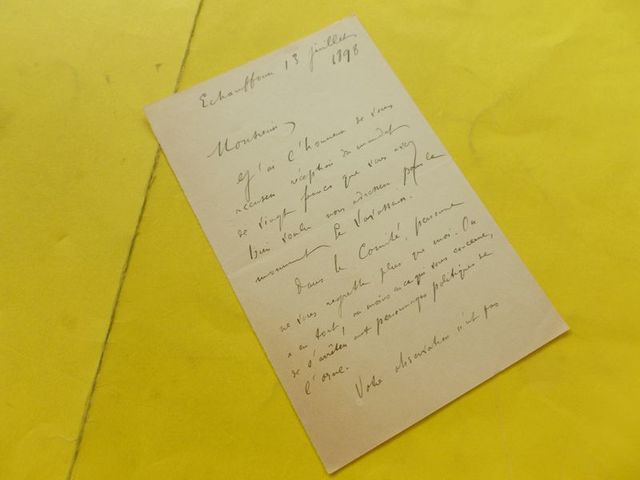 Echauffour 13 juillet
1898
Monsieur,
J'ai l'honneur de vous
accuser réception du mandat
de vingt francs que vous avez
bien voulu nous adresser pour le
monument Le Vavasseur.
Dans le Comité, personne
ne vous regrette plus que moi. On
a eu tort, au moins en ce qui vous concerne,
de s'arrêter aux personnages politiques de
l'Orne.
Votre observation n'est pas